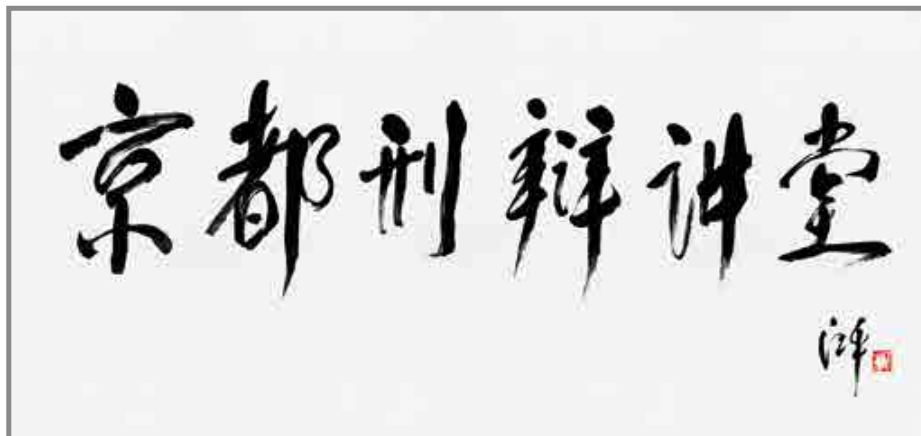 京都刑辩讲堂